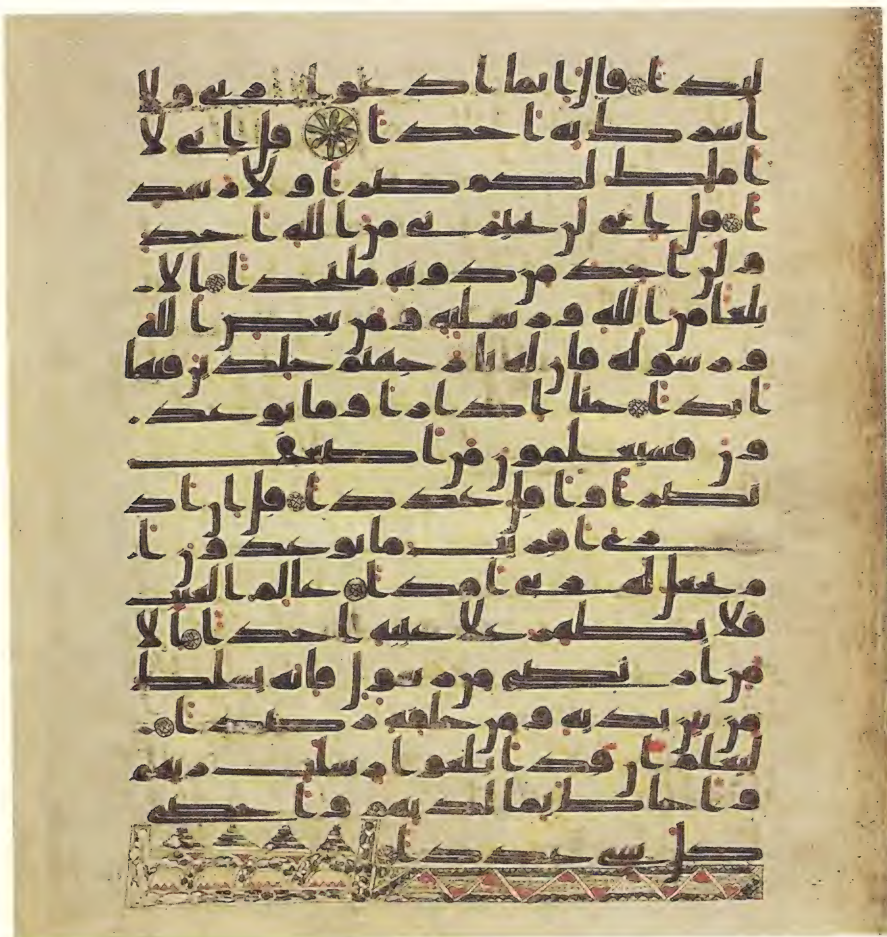 لبدا قال انما ادعوا ربى ولا
اشرك به احدا قل انى لا
املك لكم ضرا ولا رشد
ا قل انى لن يجيرنى من الله احد
ولن اجد من دونه ملتحدا الا
بلغا من الله ورسلته ومن يعص الله
ورسوله فان له نار جهنم خلدين فيها
ابدا حتا اذا راوا ما يوعد
ون فسيعلمون من اضعف
نصرا واقل عددا قل ان اد
رى اقريب ما توعدون ا
م يجعل له ربى امدا عالم الغيب
فلا يظهر علا غيبه احدا الا
من ارتضى من رسول فانه يسلك
من بين يديه ومن خلفه رصدا
ليعلم ان قد ابلغوا رسلت ربهم
واحاط بما لديهم واحصى
كل شى عددا